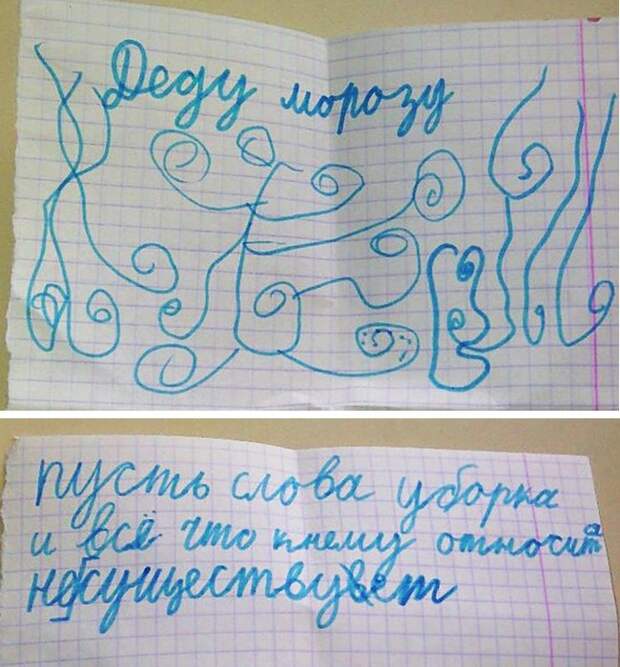 Деду морозу
пусть слова уборка
и всё что кнему относита
несуществует